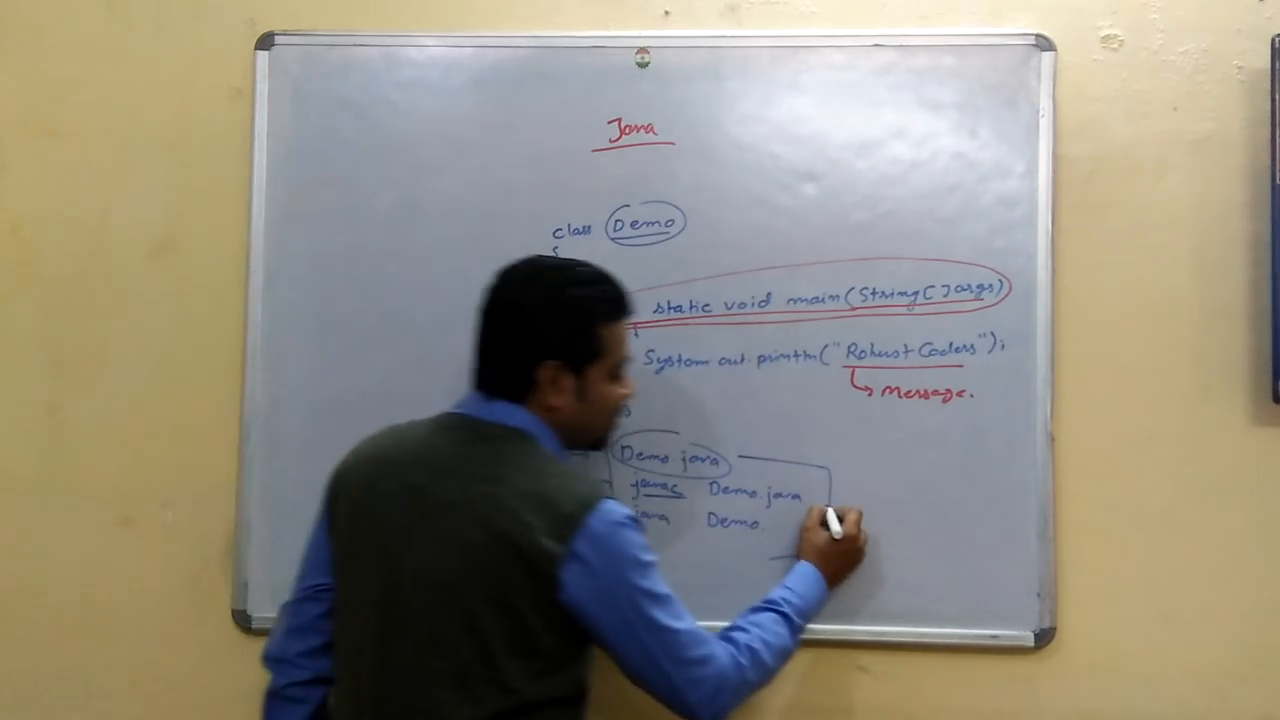 Java
class Demo
{
static void main(String[] args)
System.out.println("Robust Coders");
Message.
Demo.java
javac Demo.java
java Demo.